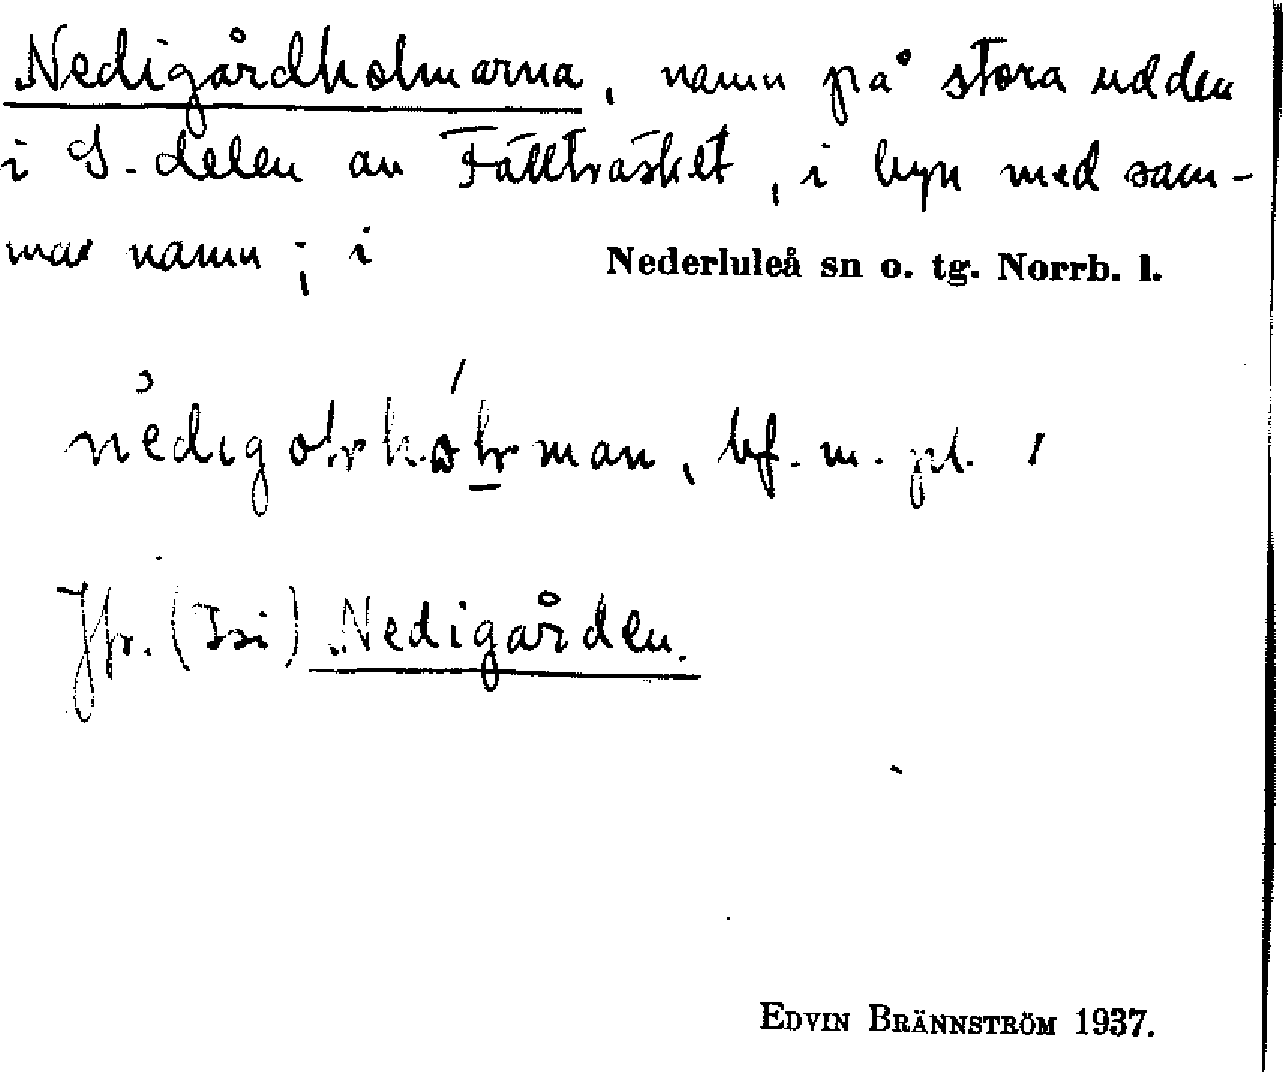 Nedigårdholmarna, namn på stora udden
i S. delen av Fällträsket, i byn med sam-
ma namn; i Nederluleå sn o. tg. Norrb. l.
bf. m. pl.
Jfr. (Isi) Nedigården.
EDVIN BRÄNNSTRÖM 1937.